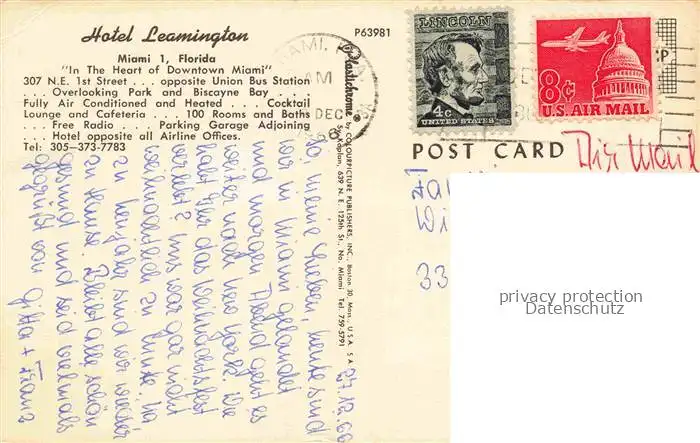 Hotel Leamington
P63981
Miami 1, Florida
"In The Heart of Downtown Miami"
307 N.E. 1st Street . . . opposite Union Bus Station
. . . Overlooking Park and Biscayne Bay . . .
Fully Air Conditioned and Heated . . . Cocktail
Lounge and Cafeteria . . . 100 Rooms and Baths
. . . Free Radio . . . Parking Garage Adjoining
Hotel opposite all Airline Offices.
Tel: 305-373-7783
MIAMI,
AM
DEC
Plastichrome ® by COLOURPICTURE PUBLISHERS, INC., Boston 30, Mass., U.S.A.
Sy Kaplan, 639 N.E. 125th St., No. Miami Tel. 759-5791
LINCOLN
4c
UNITED STATES
8c
U.S. AIR MAIL
POST CARD
Air Mail
27.12.66
So, meine Lieben, heute sind
wir in Miami gelandet
und morgen Abend geht es
weiter nach New York. Wie
habt Ihr das Weihnachtsfest
verlebt? Uns war gar nicht
weihnachtlich zu Mute. Na
zu Neujahr sind wir wieder
zu Hause. Bleibt alle schön
gesund und seid vielmals
gegrüßt von Gitta + Franz
Wi
33
privacy protection
Datenschutz